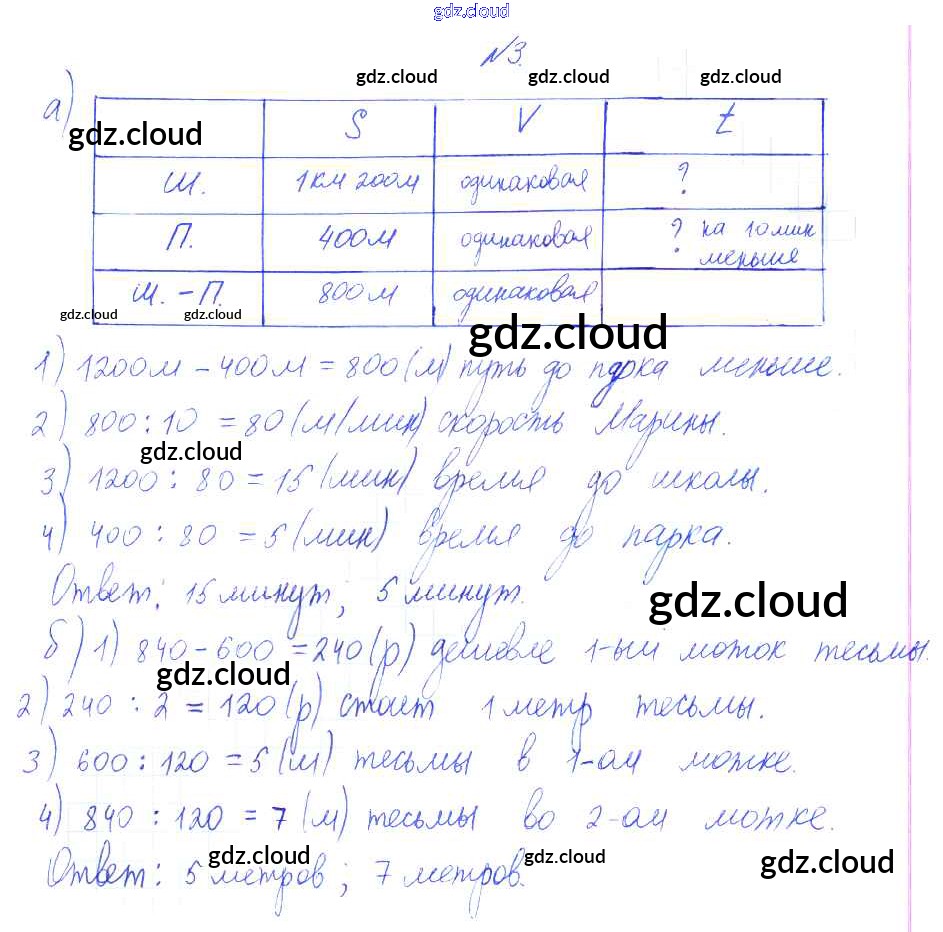 gdz.cloud
№3.
gdz.cloud gdz.cloud gdz.cloud
а)
gdz.cloud S V t
gdz.cloud
Ш. 1км 200м одинаковая ?
П. 400м одинаковая ? на 10 мин меньше
Ш. – П. 800м одинаковая
gdz.cloud gdz.cloud
gdz.cloud
1) 1200м – 400м = 800 (м) путь до парка меньше.
2) 800 : 10 = 80 (м/мин) скорость Марины.
gdz.cloud
3) 1200 : 80 = 15 (мин) время до школы.
4) 400 : 80 = 5 (мин) время до парка.
Ответ: 15 минут; 5 минут.
gdz.cloud
б) 1) 840 – 600 = 240 (р) дешевле 1-ый моток тесьмы.
gdz.cloud
2) 240 : 2 = 120 (р) стоит 1 метр тесьмы.
3) 600 : 120 = 5 (м) тесьмы в 1-ом мотке.
4) 840 : 120 = 7 (м) тесьмы во 2-ом мотке.
gdz.cloud gdz.cloud gdz.cloud
Ответ: 5 метров; 7 метров.